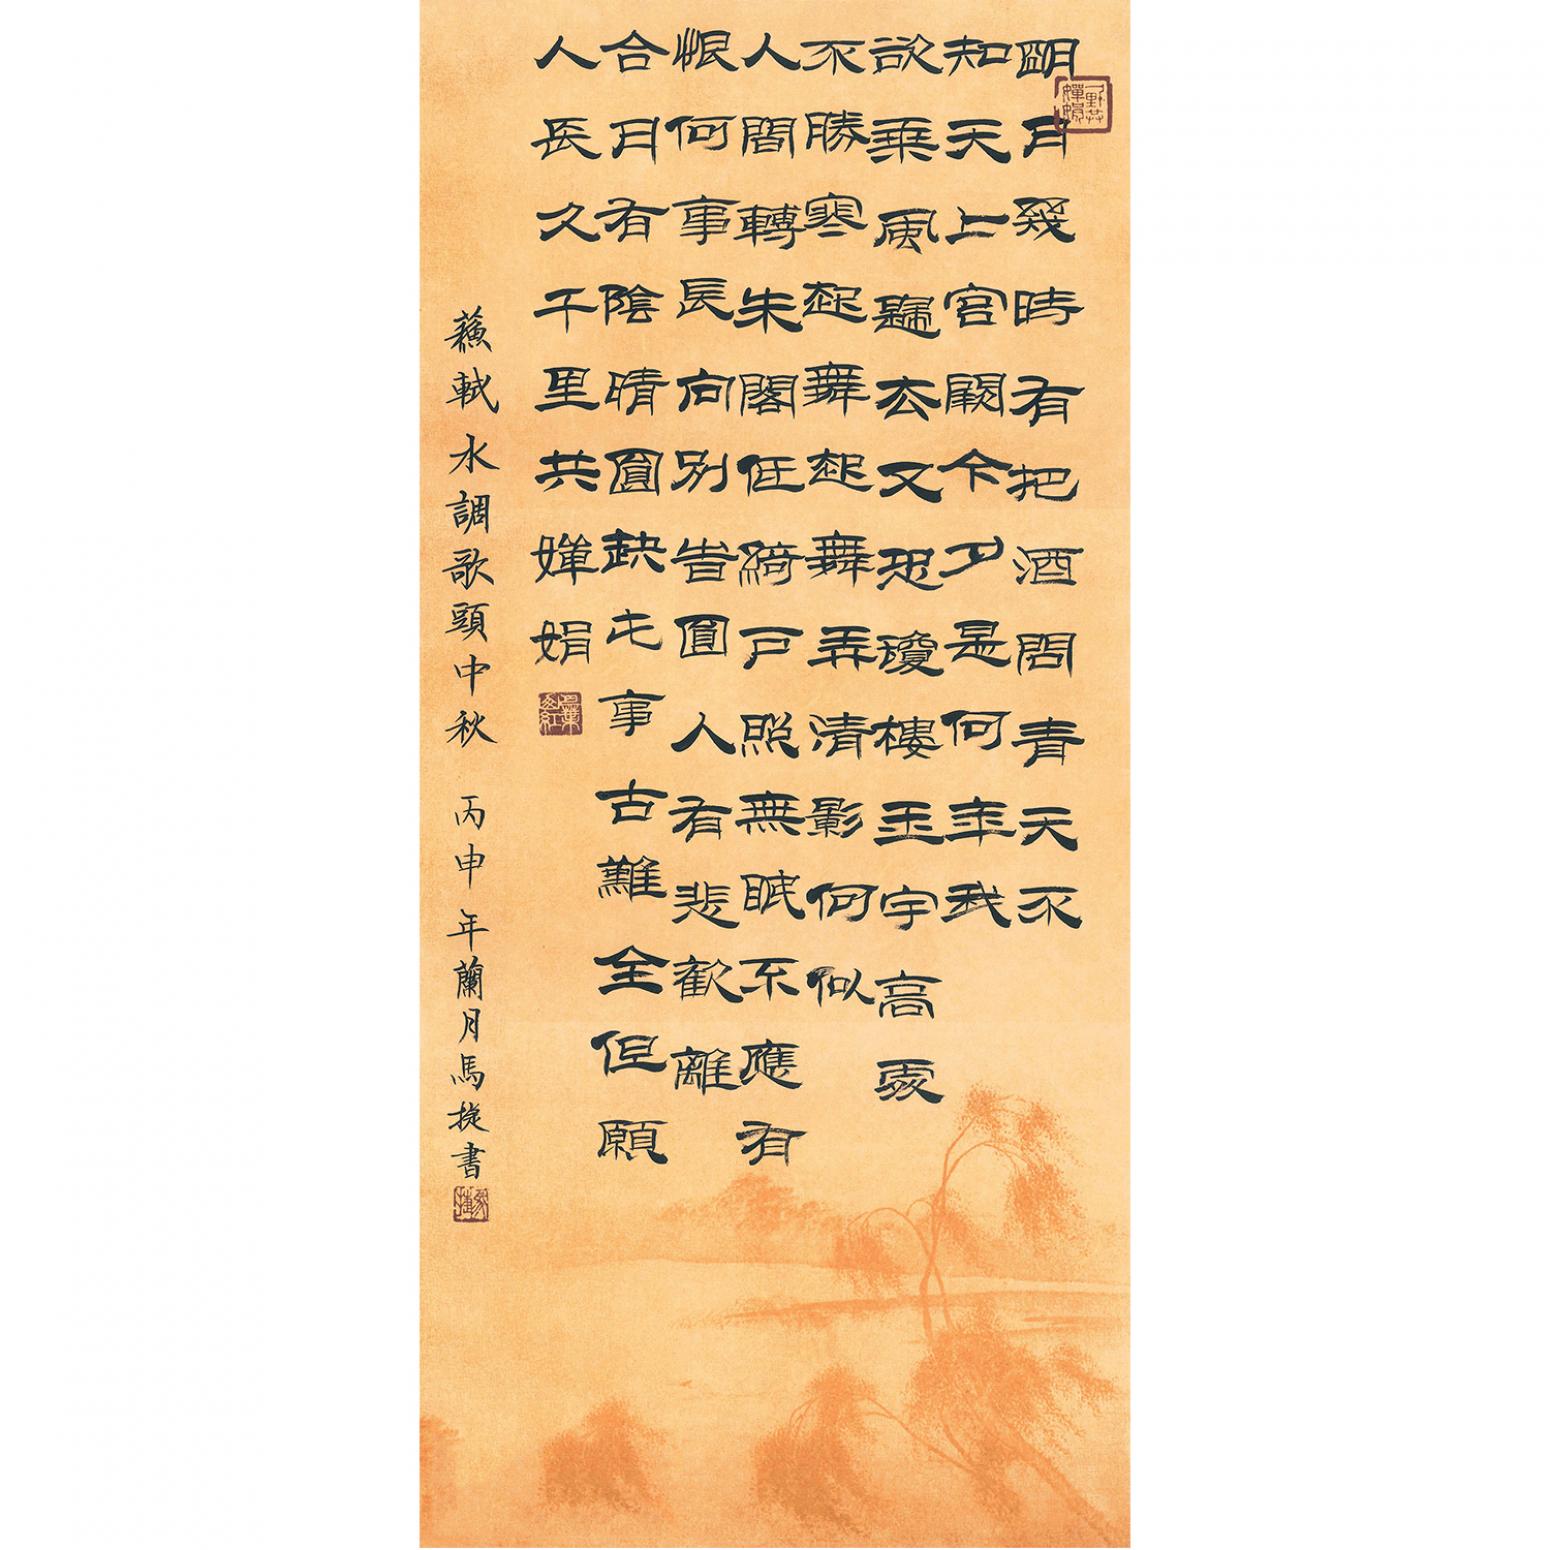 千里共嬋娟
明月幾時有把酒問青天不
知天上宮闕今夕是何年我
欲乘風歸去又恐瓊樓玉宇高處
不勝寒起舞起舞弄清影何似
人間轉朱閣低綺戶照無眠不應有
恨何事長向別旹圓人有悲歡離
合月有陰晴圓缺此事古難全但願
人長久千里共嬋娟
蘇軾水調歌頭中秋 丙申年蘭月馬捷書
馬捷